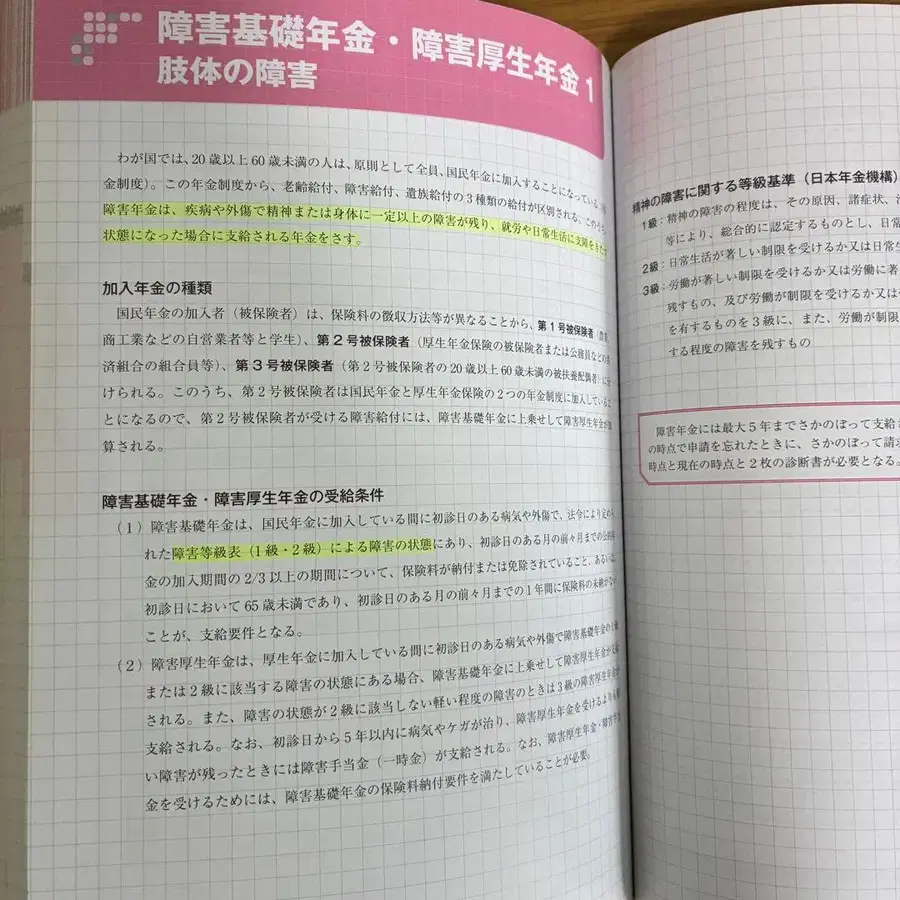 障害基礎年金・障害厚生年金 1
肢体の障害
わが国では、20歳以上60歳未満の人は、原則として全員、国民年金に加入することになっている
金制度)。この年金制度から、老齢給付、障害給付、遺族給付の3種類の給付が区別される。このうち、
障害年金は、疾病や外傷で精神または身体に一定以上の障害が残り、就労や日常生活に支障を
状態になった場合に支給される年金をさす。
加入年金の種類
国民年金の加入者(被保険者)は、保険料の徴収方法等が異なることから、第1号被保険者
商工業などの自営業者等と学生)、第2号被保険者(厚生年金保険の被保険者または公務員などの
済組合の組合員等)、第3号被保険者(第2号被保険者の20歳以上60歳未満の被扶養配偶者)に分
けられる。このうち、第2号被保険者は国民年金と厚生年金保険の2つの年金制度に加入しているこ
とになるので、第2号被保険者が受ける障害給付には、障害基礎年金に上乗せして障害厚生年金が加
算される。
障害基礎年金・障害厚生年金の受給条件
(1)障害基礎年金は、国民年金に加入している間に初診日のある病気や外傷で、法令により定め
れた障害等級表(1級・2級)による障害の状態にあり、初診日のある月の前々月までの公的年
金の加入期間の2/3以上の期間について、保険料が納付または免除されていること、あるいは
初診日において65歳未満であり、初診日のある月の前々月までの1年間に保険料の未納がない
ことが、支給要件となる。
(2)障害厚生年金は、厚生年金に加入している間に初診日のある病気や外傷で障害基礎年金の
または2級に該当する障害の状態にある場合、障害基礎年金に上乗せして障害厚生年金が支給
される。また、障害の状態が2級に該当しない軽い程度の障害のときは3級の障害厚生年金が
支給される。なお、初診日から5年以内に病気やケガが治り、障害厚生年金を受けるよりも軽
い障害が残ったときには障害手当金(一時金)が支給される。なお、障害厚生年金・障害手当
金を受けるためには、障害基礎年金の保険料納付要件を満たしていることが必要。
精神の障害に関する等級基準(日本年金機構)
1級:精神の障害の程度は、その原因、諸症状、
等により、総合的に認定するものとし、日常
2級:日常生活が著しい制限を受けるか又は日常生
3級:労働が著しい制限を受けるか又は労働に著
残すもの、及び労働が制限を受けるか又は
を有するものを3級に、また、労働が制限
する程度の障害を残すもの
障害年金には最大5年までさかのぼって支給
の時点で申請を忘れたときに、さかのぼって請求
時点と現在の時点と2枚の診断書が必要となる。